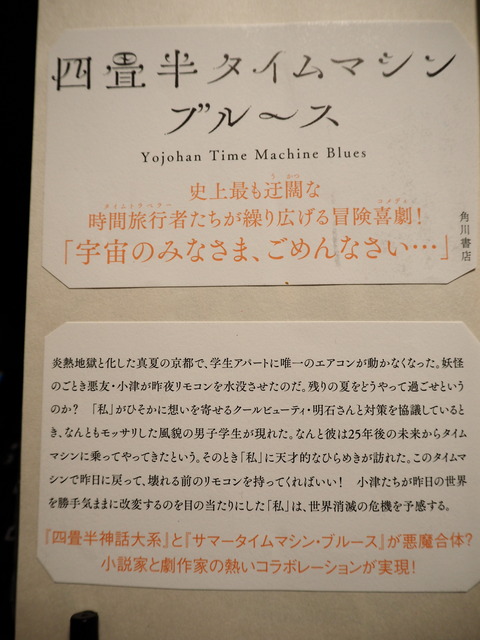 四畳半タイムマシン
ブルース
Yojohan Time Machine Blues
史上最も迂闊な
時間旅行者たちが繰り広げる冒険喜劇!
「宇宙のみなさま、ごめんなさい…」
角川書店
炎熱地獄と化した真夏の京都で、学生アパートに唯一のエアコンが動かなくなった。妖怪
のごとき悪友・小津が昨夜リモコンを水没させたのだ。残りの夏をどうやって過ごせという
のか? 「私」がひそかに想いを寄せるクールビューティ・明石さんと対策を協議していると
き、なんともモッサリした風貌の男子学生が現れた。なんと彼は25年後の未来からタイム
マシンに乗ってやってきたという。そのとき「私」に天才的なひらめきが訪れた。このタイムマ
シンで昨日に戻って、壊れる前のリモコンを持ってくればいい! 小津たちが昨日の世界
を勝手気ままに改変するのを目の当たりにした「私」は、世界消滅の危機を予感する。
『四畳半神話大系』と『サマータイムマシン・ブルース』が悪魔合体?
小説家と劇作家の熱いコラボレーションが実現!